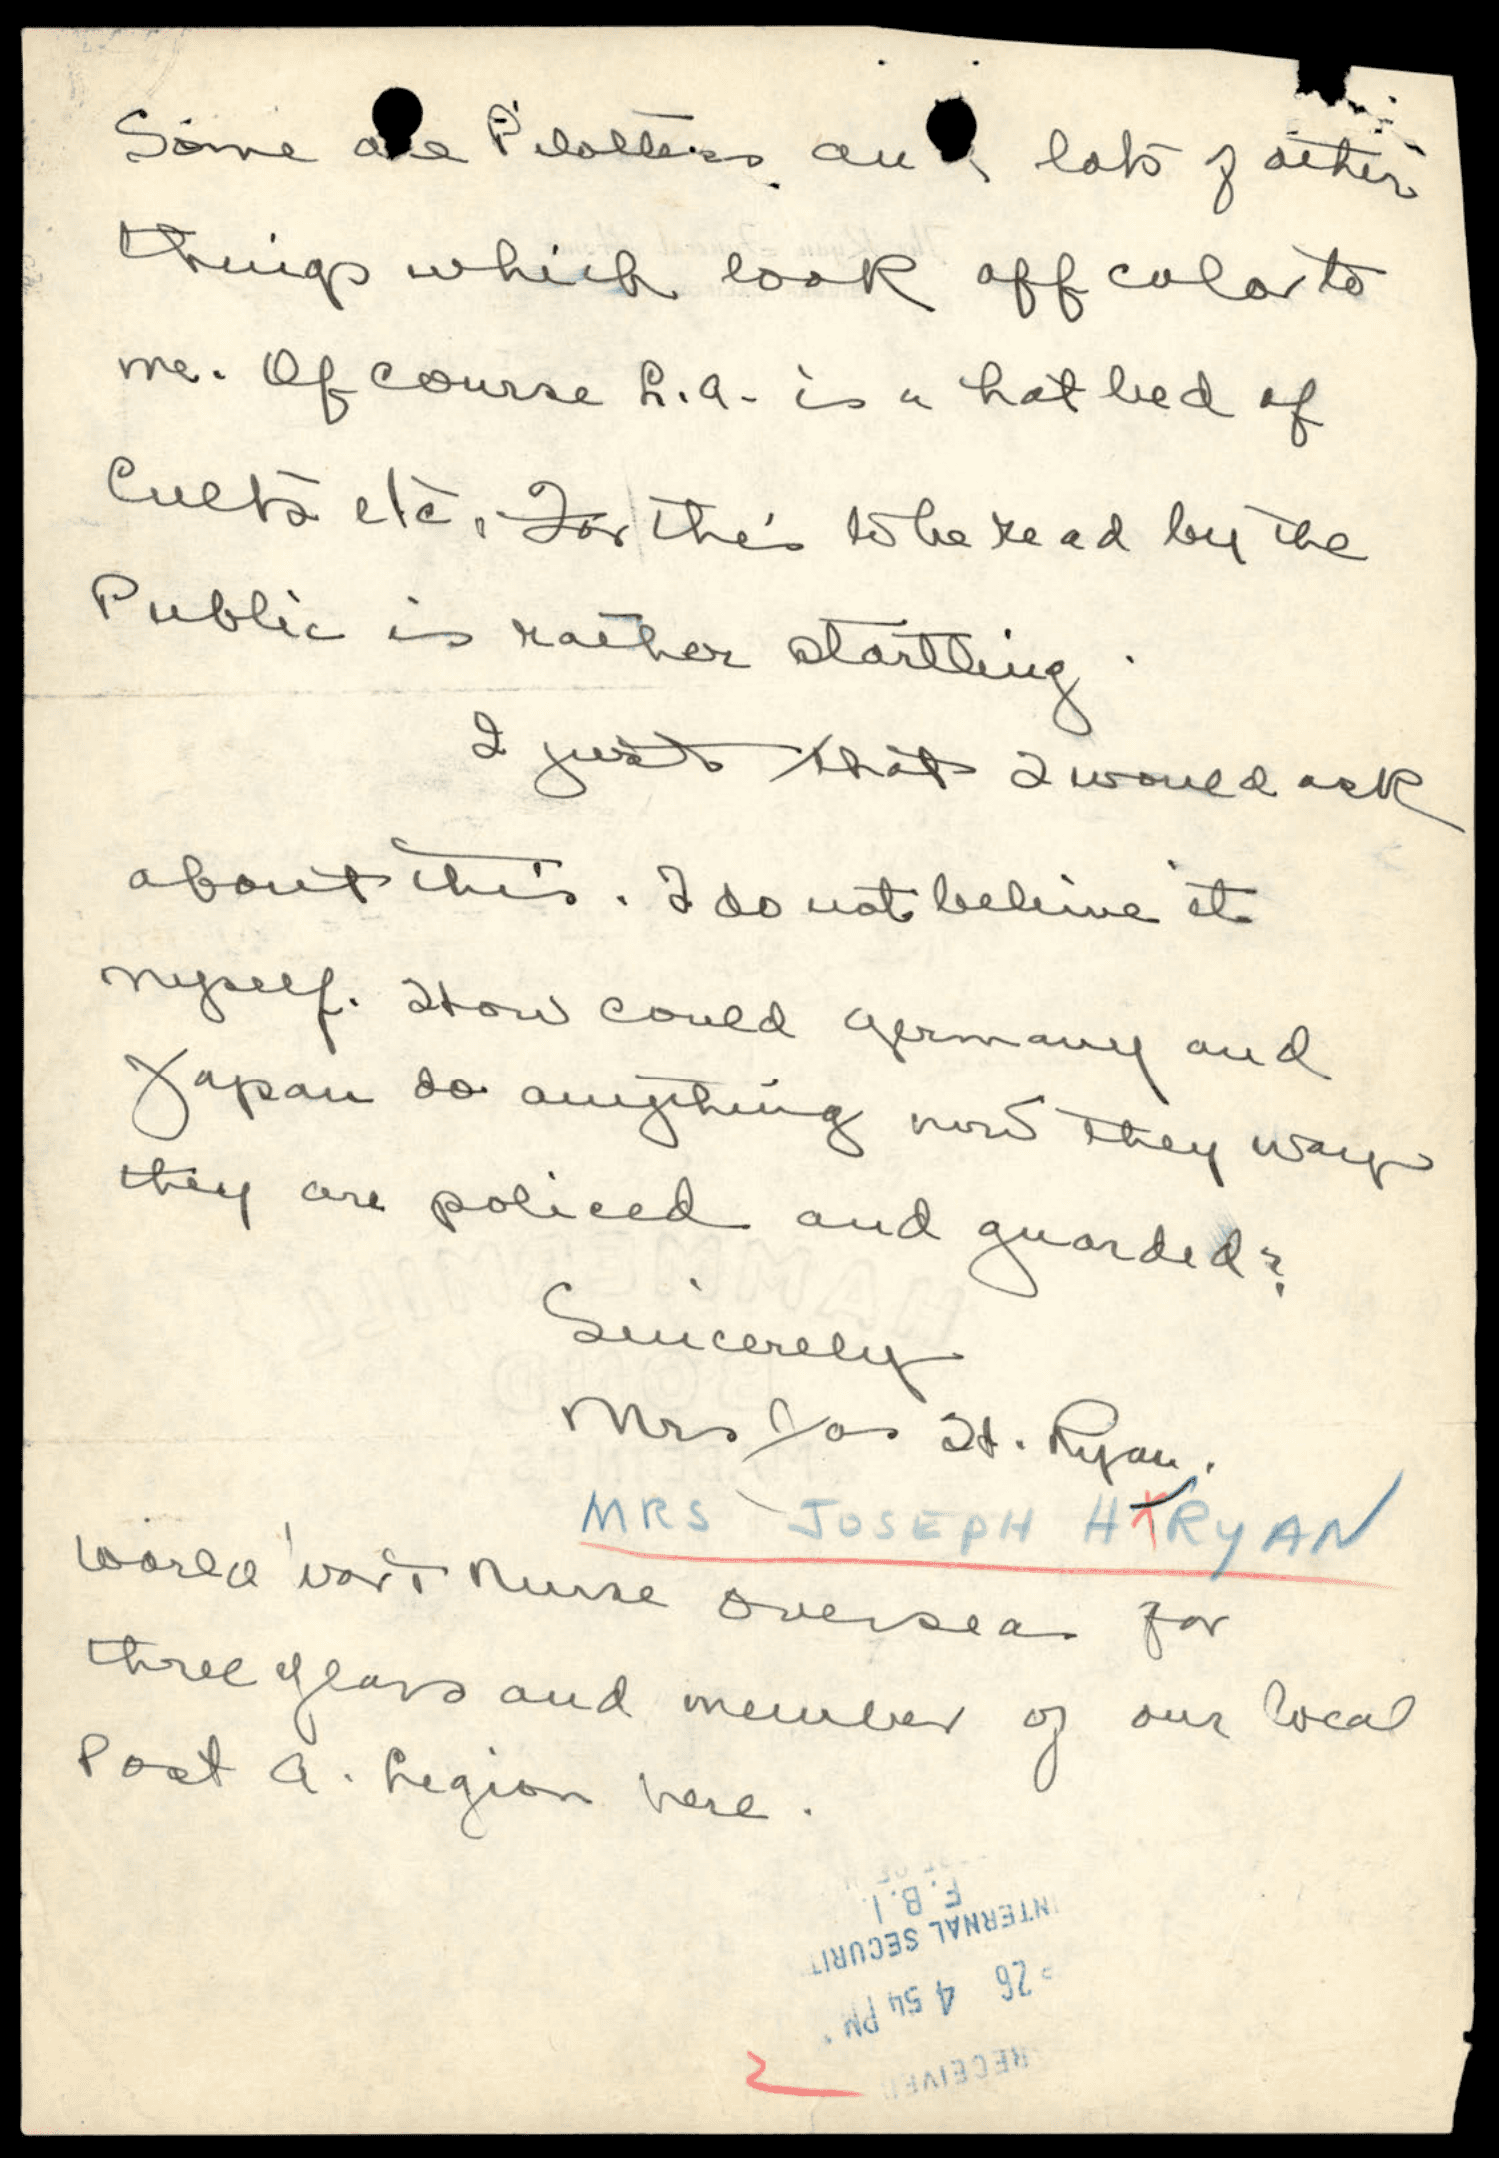 Some are Pilotters and lots of other
things which look off color to
me. Of course L.A. is a hot bed of
Cults etc. For this to be read by the
Public is rather startling.
I just that I would ask
about this. I do not believe it
myself. How could Germany and
Japan do anything now they way
they are policed and guarded?
Sincerely
Mrs Jos H. Ryan.
MRS JOSEPH H RYAN
World War I Nurse Overseas for
three years and member of our local
Post A. Legion here.
F. B. I.
INTERNAL SECURIT
26 4 54 PM
RECEIVE
HAMMERMILL
BOND